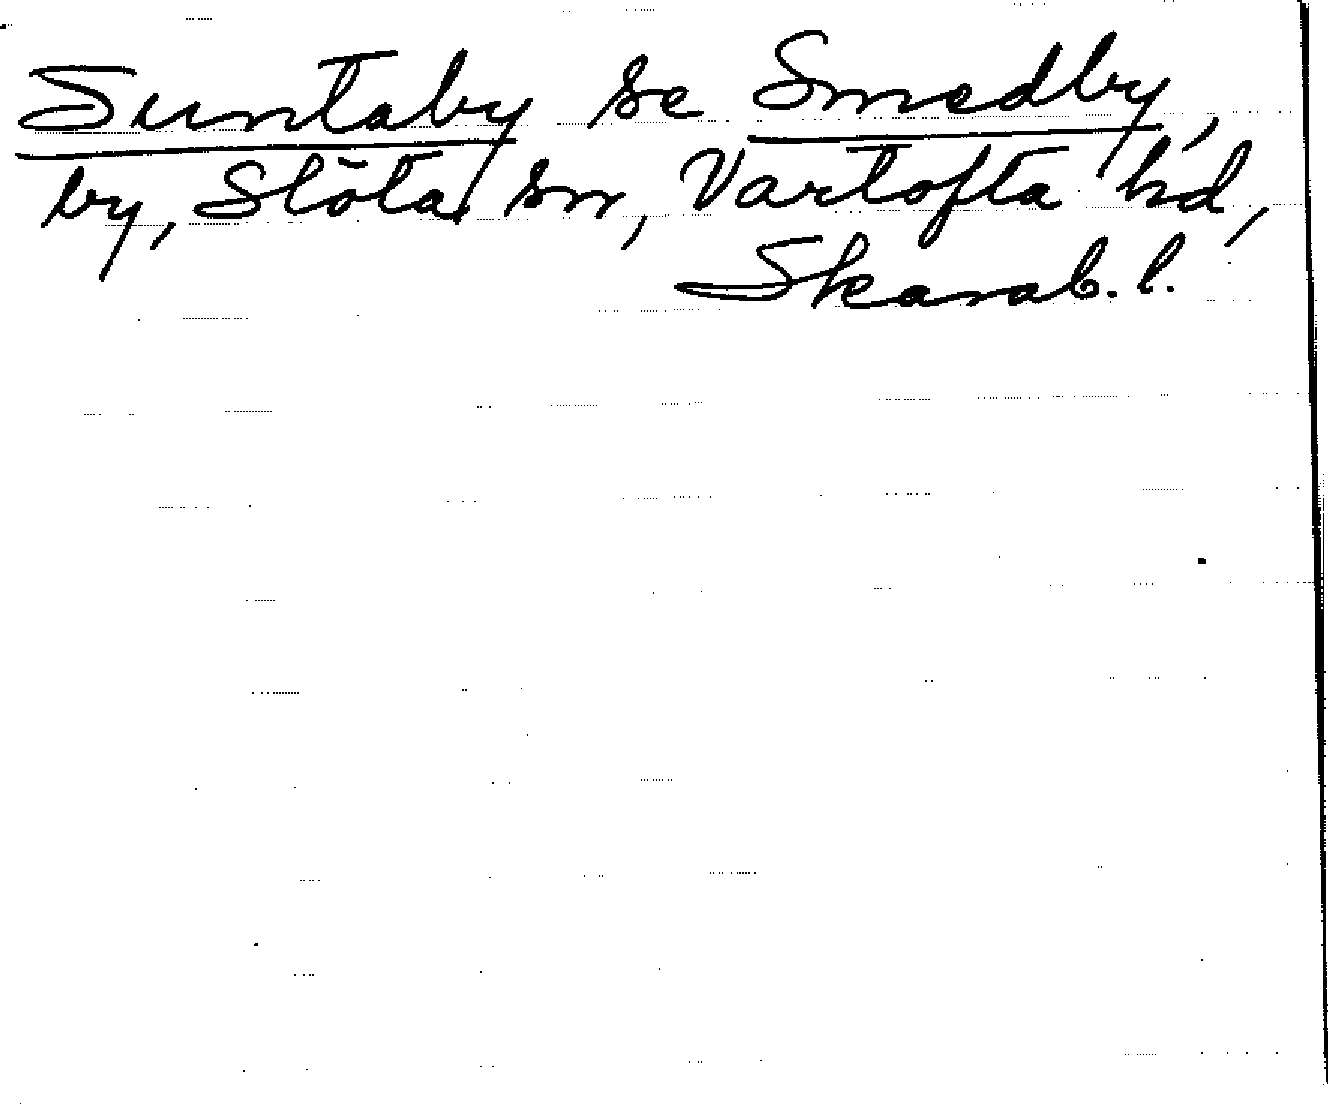 Suntaby se Smedby,
by, Slöta sn, Vartofta hd,
Skarab. l.